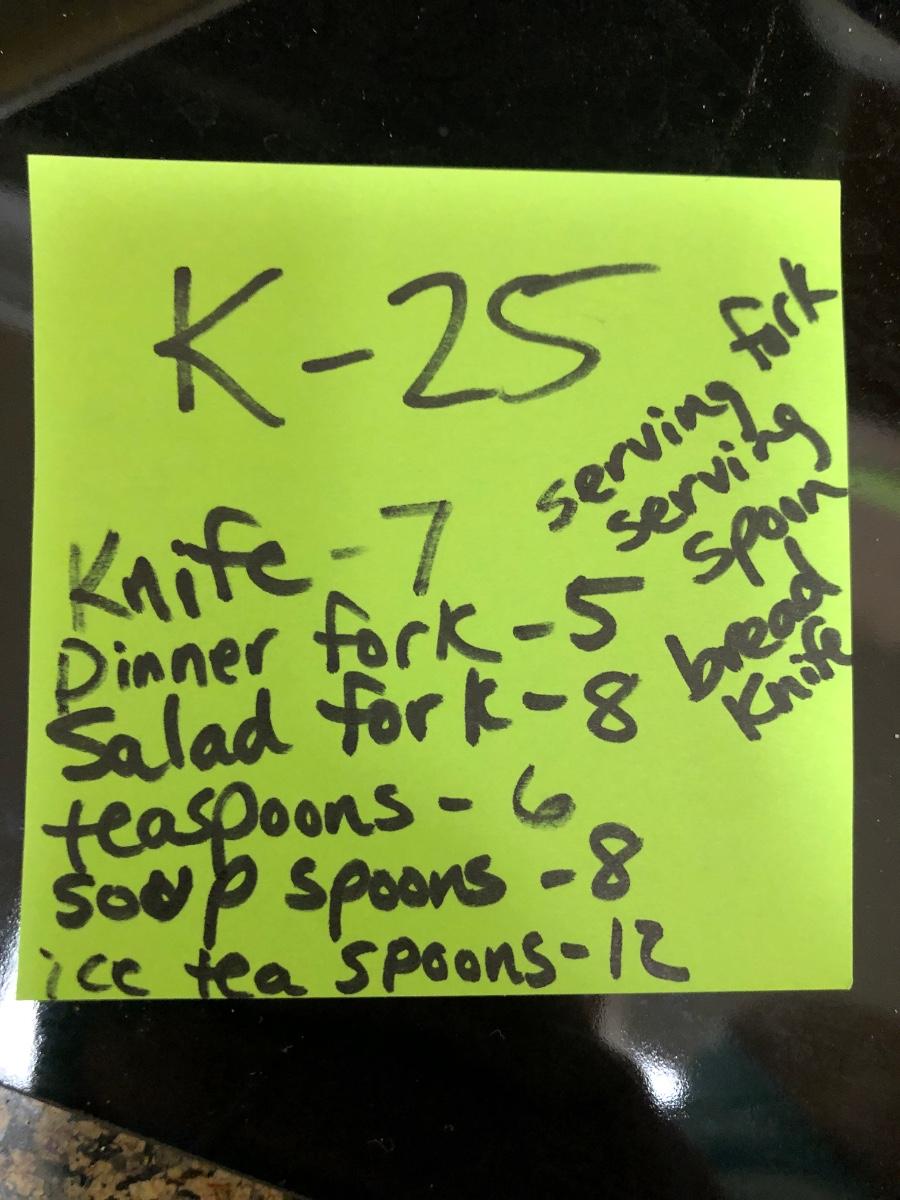 K-25
Knife-7
Dinner fork-5
Salad fork-8
teaspoons-6
soup spoons-8
ice tea spoons-12
serving fork
serving
spoon
bread
Knife